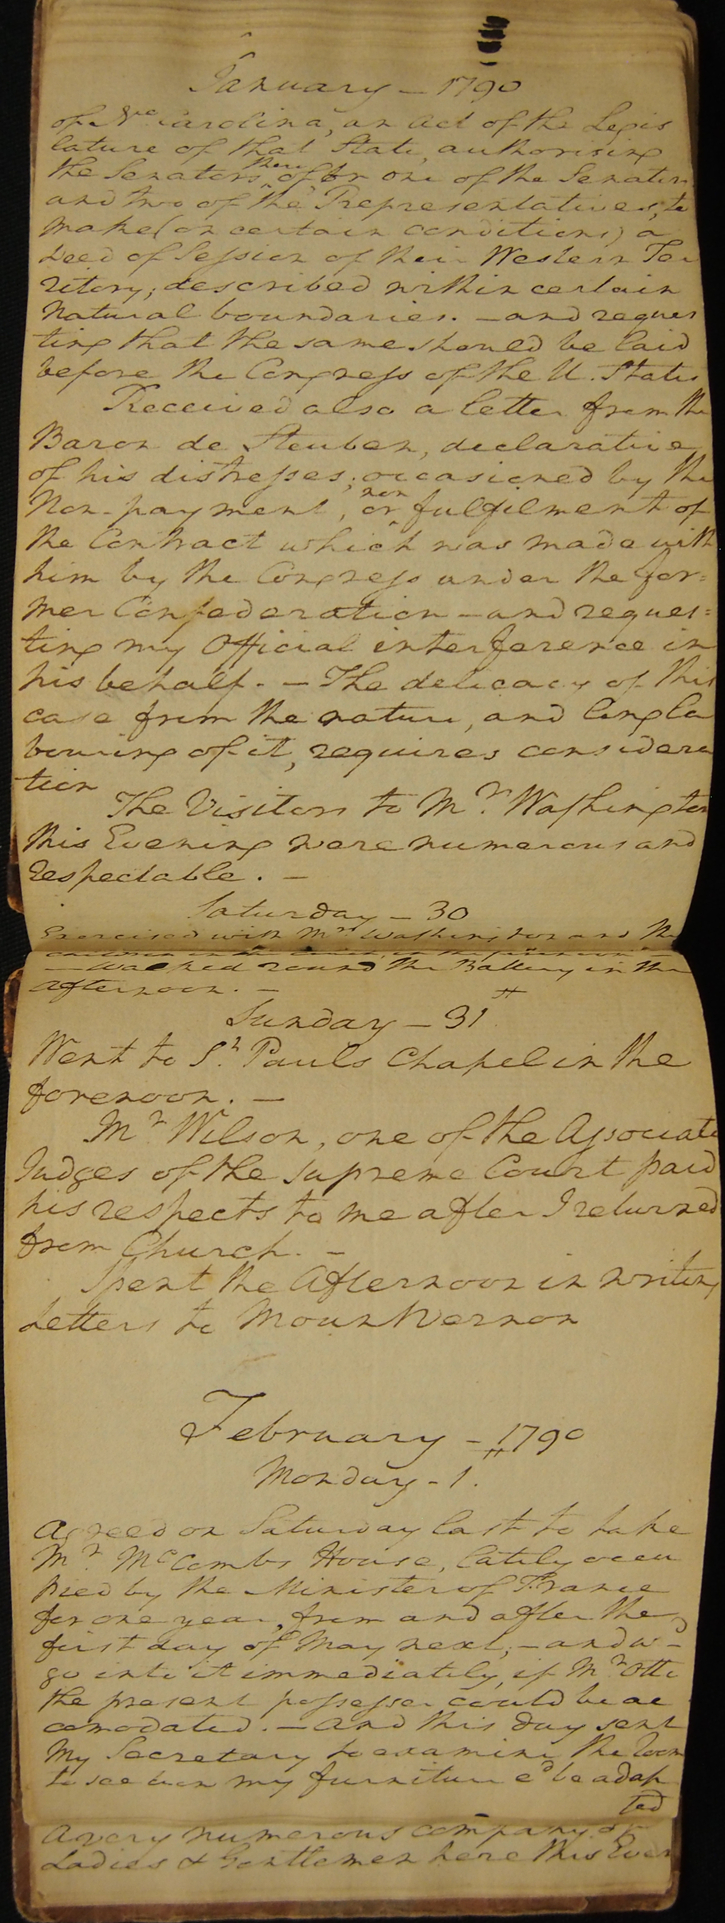 January - 1790
of No. Carolina, an act of the Legis
lature of that State, authorising
the Senators there of or one of the Senators
and two of the Representatives, to
make (on certain conditions) a
deed of Session of their Western Ter
ritory, described within certain
natural boundaries. - and reques
ting that the same should be laid
before the Congress of the U. States
Received also a letter from the
Baron de Steuben, declarative
of his distresses; occasioned by the
Non-payment, or non fulfilment of
the Contract which was made with
him by the Congress under the for=
mer Confederation - and reques=
ting my Official interference in
his behalf. - The delicacy of this
case from the nature, and long la
bouring of it, requires considera
tion
The Visitors to Mrs. Washington
this Evening were numerous and
respectable. -
Saturday - 30
Exercised with Mrs Washington and the
children in the Coach in the forenoon
- Walked round the Battery in the
afternoon. -
Sunday - 31st
Went to St. Pauls Chapel in the
forenoon. -
Mr. Wilson, one of the Associate
Judges of the Supreme Court paid
his respects to me after I returned
from Church. -
Spent the Afternoon in writing
Letters to Mount Vernon
February - 1790
Monday - 1st.
Agreed on Saturday last to take
Mr. McCombs House, lately occu
pied by the Minister of France
for one year, from and after the
first day of May next; - and w-
go into it immediately, if Mr. Otto
the present possesser could be ac
comodated. - and this day sent
my Secretary to examine the rooms
to see how my furniture cd. be adap
ted
A very numerous company of
Ladies & Gentlemen here this Even